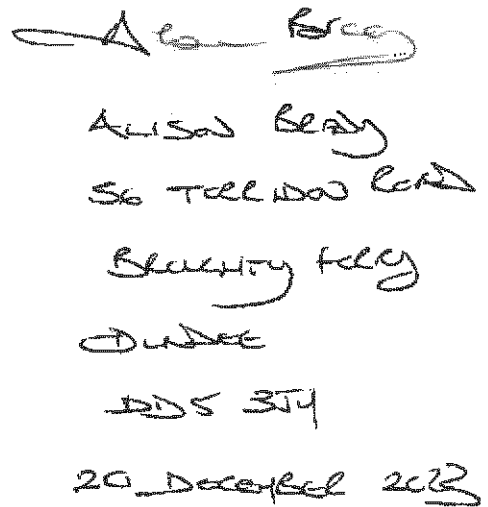 Alison Brady
56 Torridon Road
Broughty Ferry
Dundee
DD5 3JH
20 December 2023